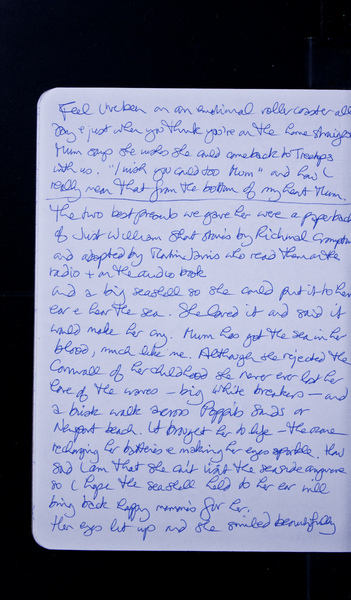 Feel I've been on an emotional roller coaster all
day & just when you think you're on the home straight
Mum says she wishes she could come back to Treetops
with us. "I wish you could too Mum" and how I
really mean that from the bottom of my heart Mum.
The two best presents we gave her were a paperback
of Just William short stories by Richmal Crompton
and adapted by Martin Jarvis who read them on the
radio + on the audio book
and a big seashell so she could put it to her
ear & hear the sea. She loved it and said it
would make her cry. Mum has got the sea in her
blood, much like me. Although she rejected the
Cornwall of her childhood she never ever lost her
love of the waves – big white breakers – and
a brisk walk across Poppit Sands or
Newport beach. It brought her to life – the ozone
recharging her batteries & making her eyes sparkle. How
sad I am that she can't visit the seaside anymore
so I hope the seashell held to her ear will
bring back happy memories for her.
Her eyes lit up and she smiled beautifully